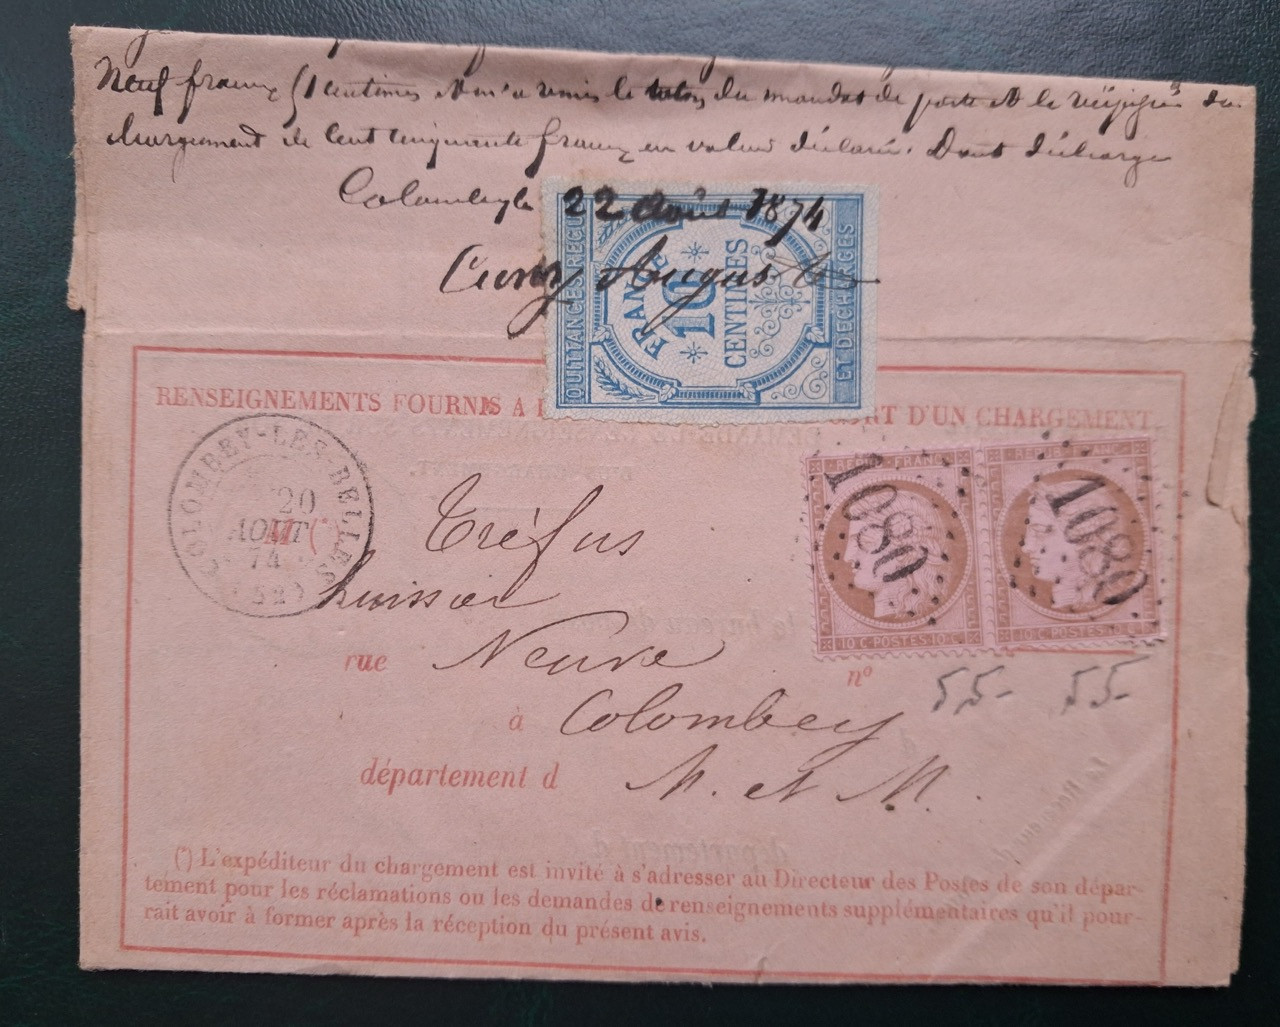 Neuf francs 51 centimes & m'a remis le talon du mandat de poste & le récépissé du
chargement de cent cinquante francs en valeur déclarée. Dont décharge
Colombey le 22 Août 1874
Cuny Auguste
QUITTANCES RECU
FRANCE
10
CENTIMES
ET DECHARGES
RENSEIGNEMENTS FOURNIS A L SORT D'UN CHARGEMENT.
COLOMBEY-LES-BELLES
20
AOUT
74
(52)
M (*)
REPUB FRANC
10 C POSTES 10 C
1080
REPUB FRANC
10 C POSTES 10 C
1080
Tréfus
huissier
rue Neuve nº
55- 55-
à Colombey
département d M. et M.
(*) L'expéditeur du chargement est invité à s'adresser au Directeur des Postes de son dépar-
tement pour les réclamations ou les demandes de renseignements supplémentaires qu'il pour-
rait avoir à former après la réception du présent avis.